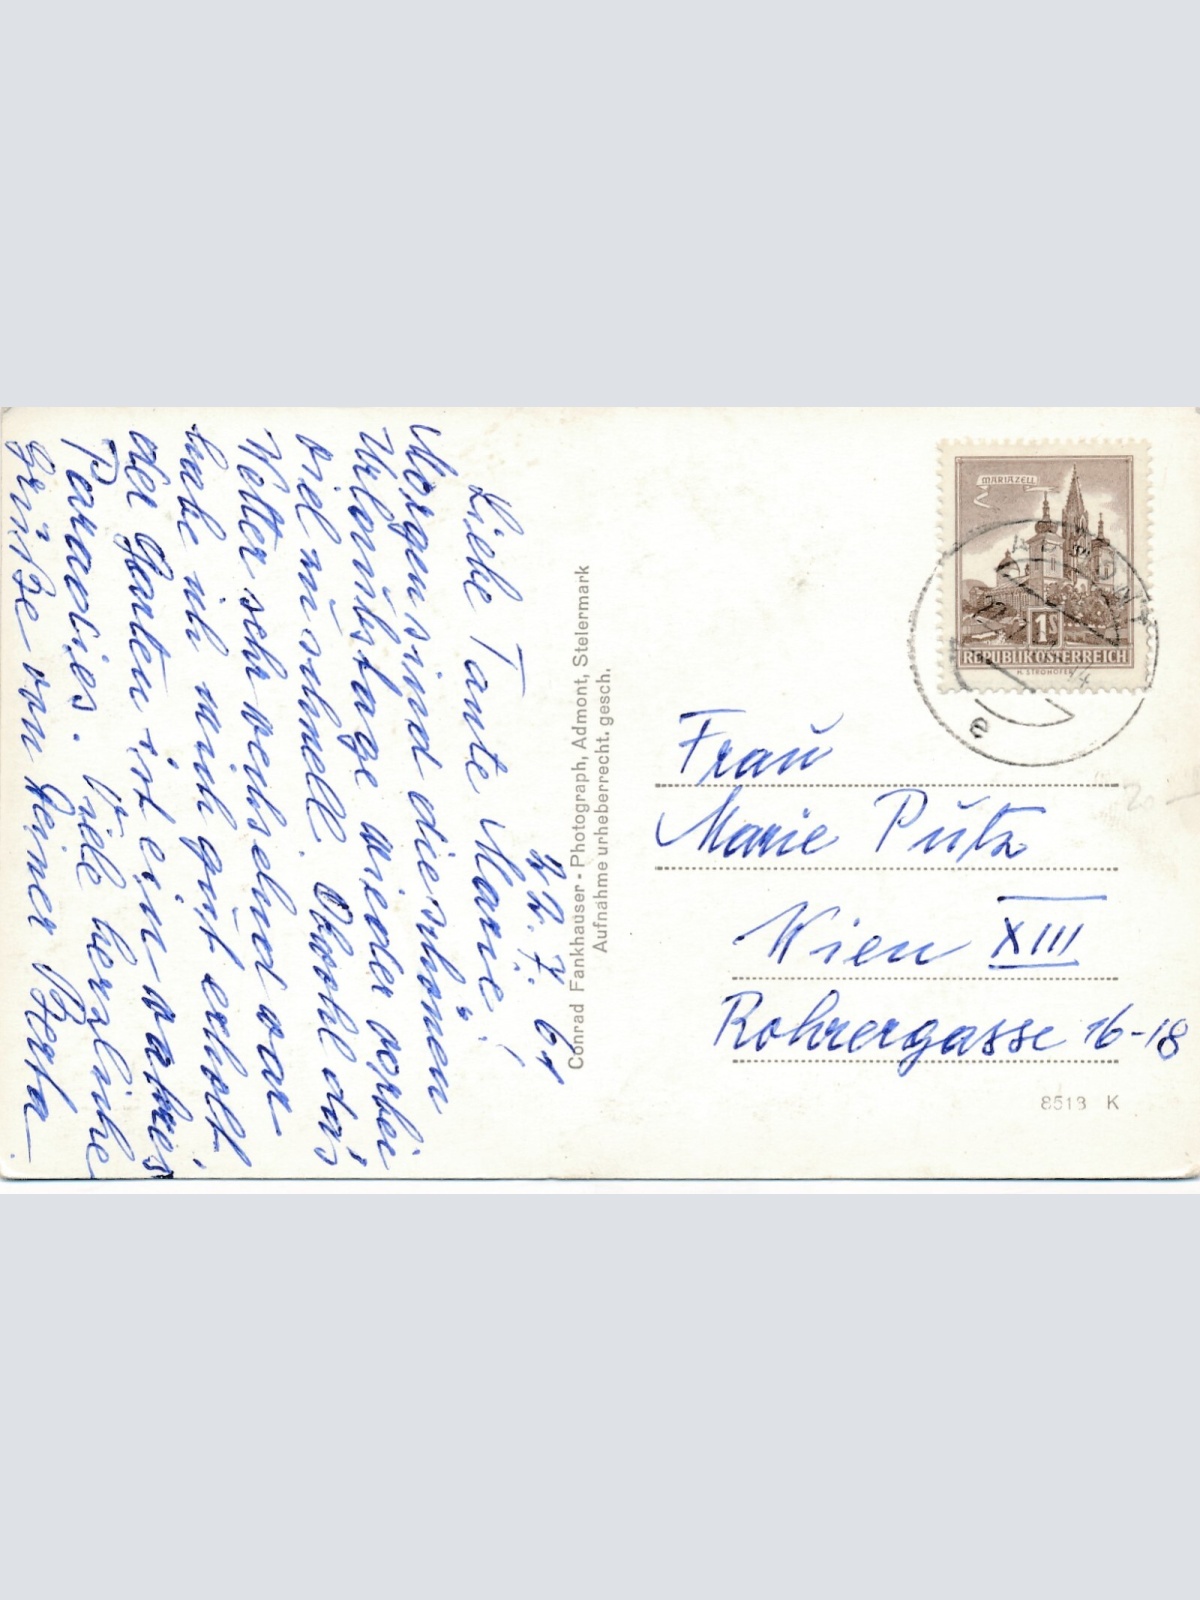 22. 7. 61
Liebe Tante Marie!
Morgen sind die schönen
Urlaubstage wieder vorbei
viel zu schnell. Obwohl das
Wetter sehr wechselnd war
habe ich mich gut erholt,
der Garten ist ein wahres
Paradies. Viele herzliche
Grüße von Deiner Berta
Conrad Fankhauser - Photograph, Admont, Steiermark
Aufnahme urheberrecht. gesch.
MARIAZELL
1S
REPUBLIK ÖSTERREICH
H. STROHOFER
e
Frau
Marie Pütz
Wien XIII
Rohrergasse 16-18
8513 K
20